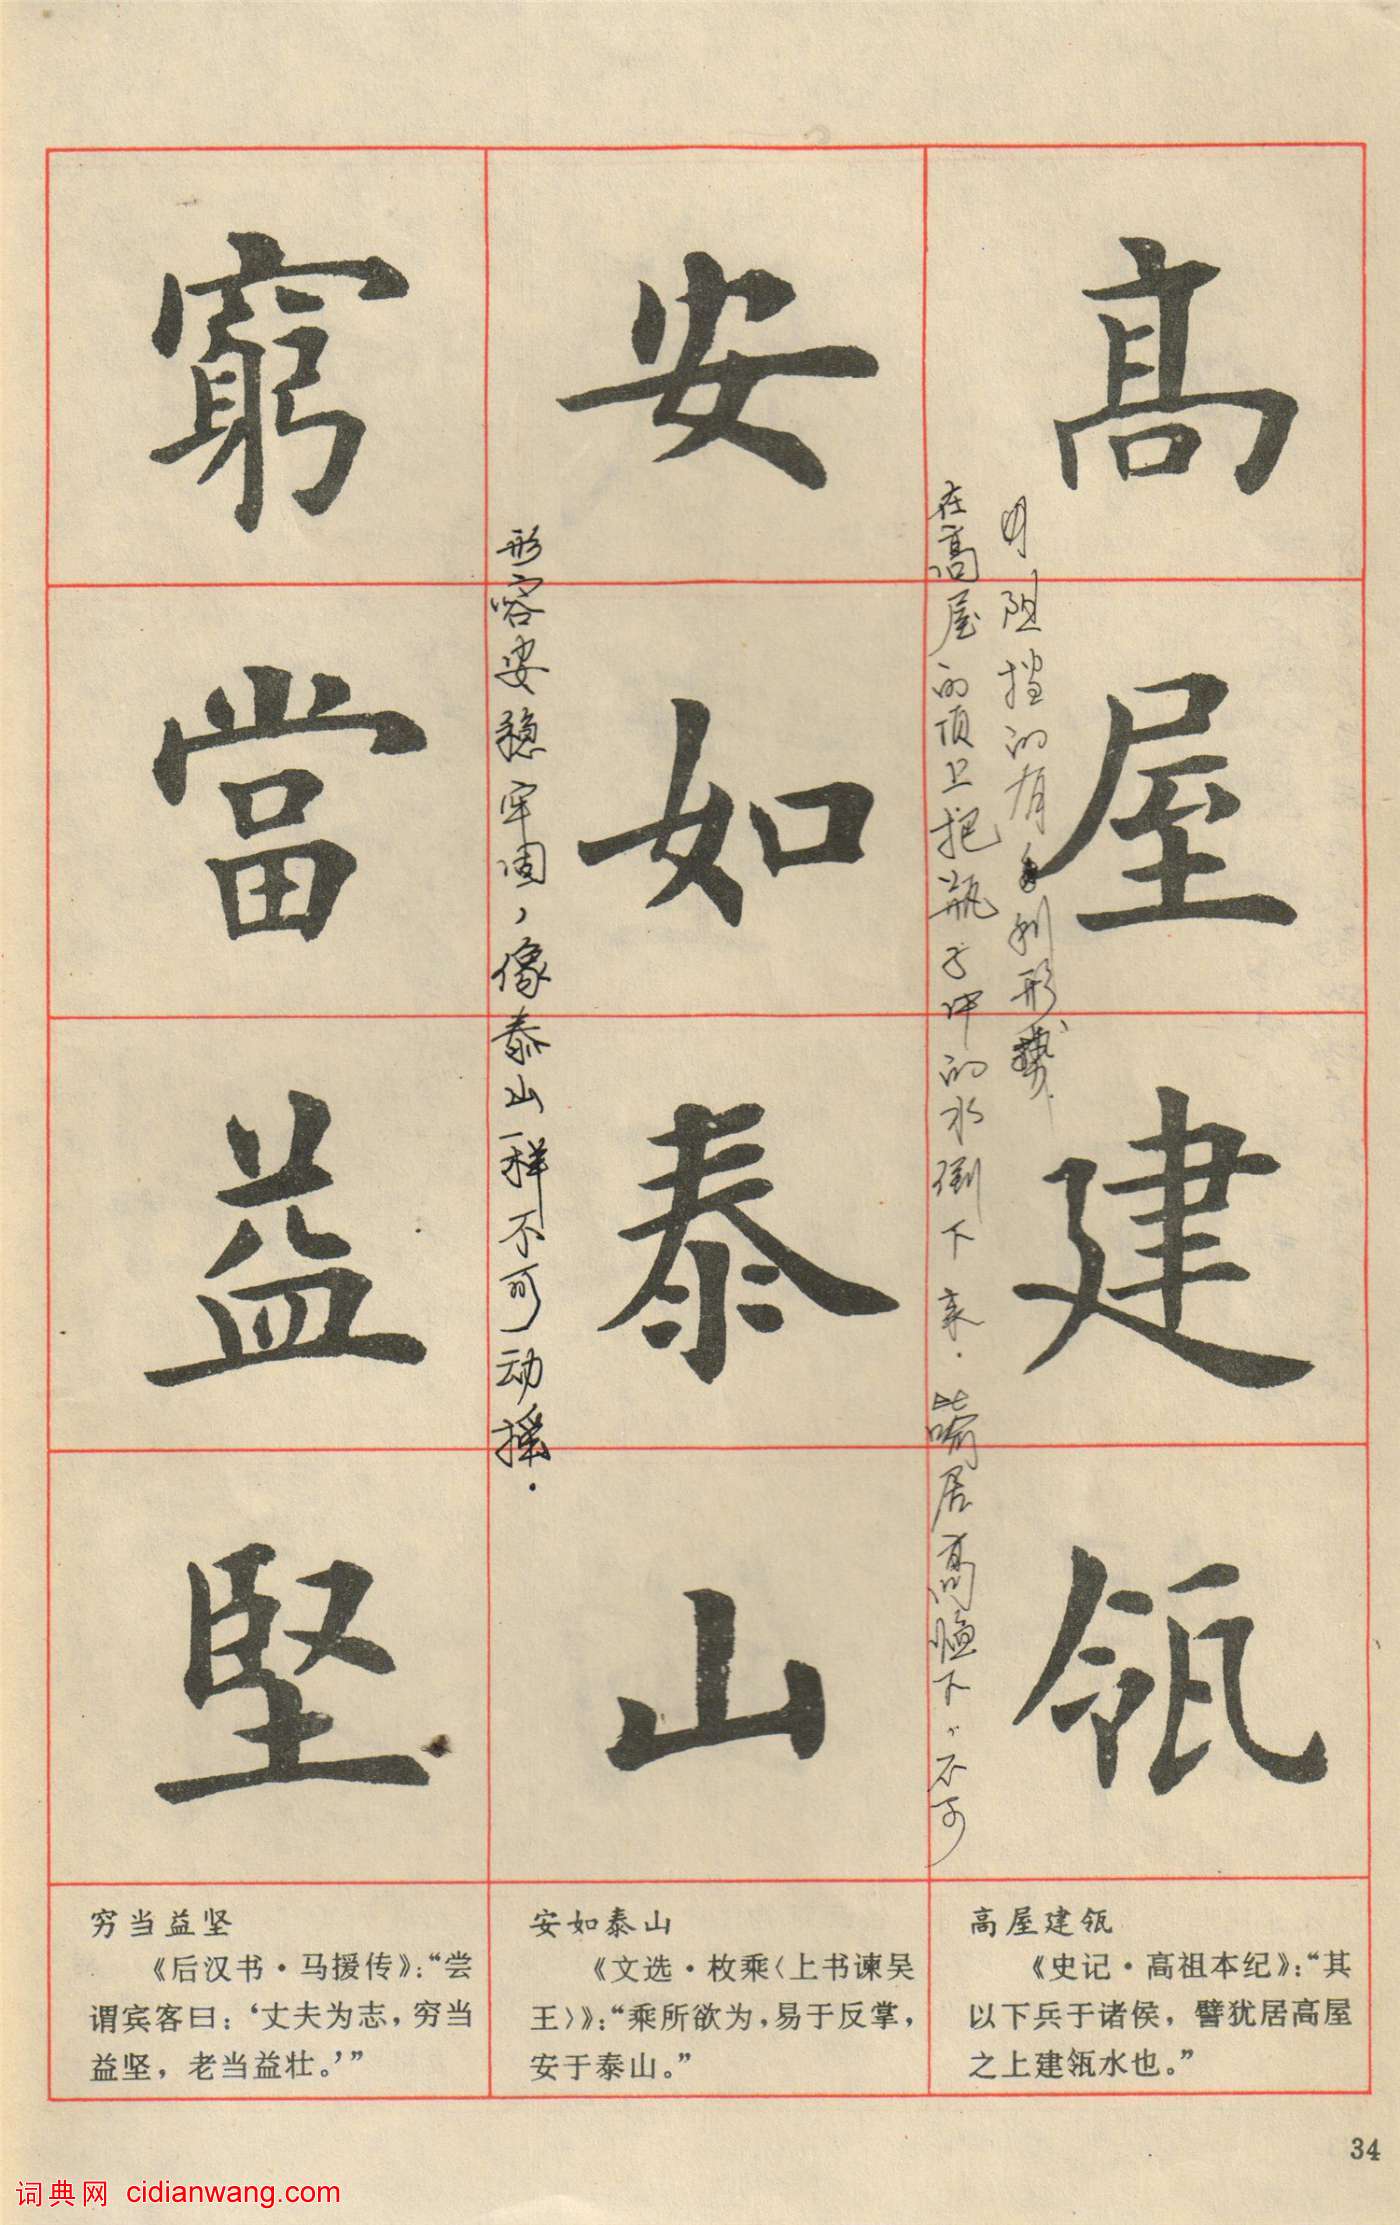 高屋建瓴
安如泰山
窮當益堅
在高屋的顶上把瓶子中的水倒下来.喻居高临下,不可
阻挡的有利形势.
形容安稳牢固,像泰山一样不可动摇.
高屋建瓴
《史记·高祖本纪》:“其
以下兵于诸侯,譬犹居高屋
之上建瓴水也。”
安如泰山
《文选·枚乘〈上书谏吴
王〉》:“乘所欲为,易于反掌,
安于泰山。”
穷当益坚
《后汉书·马援传》:“尝
谓宾客曰:‘丈夫为志,穷当
益坚,老当益壮。’”
34
词典网 cidianwang.com